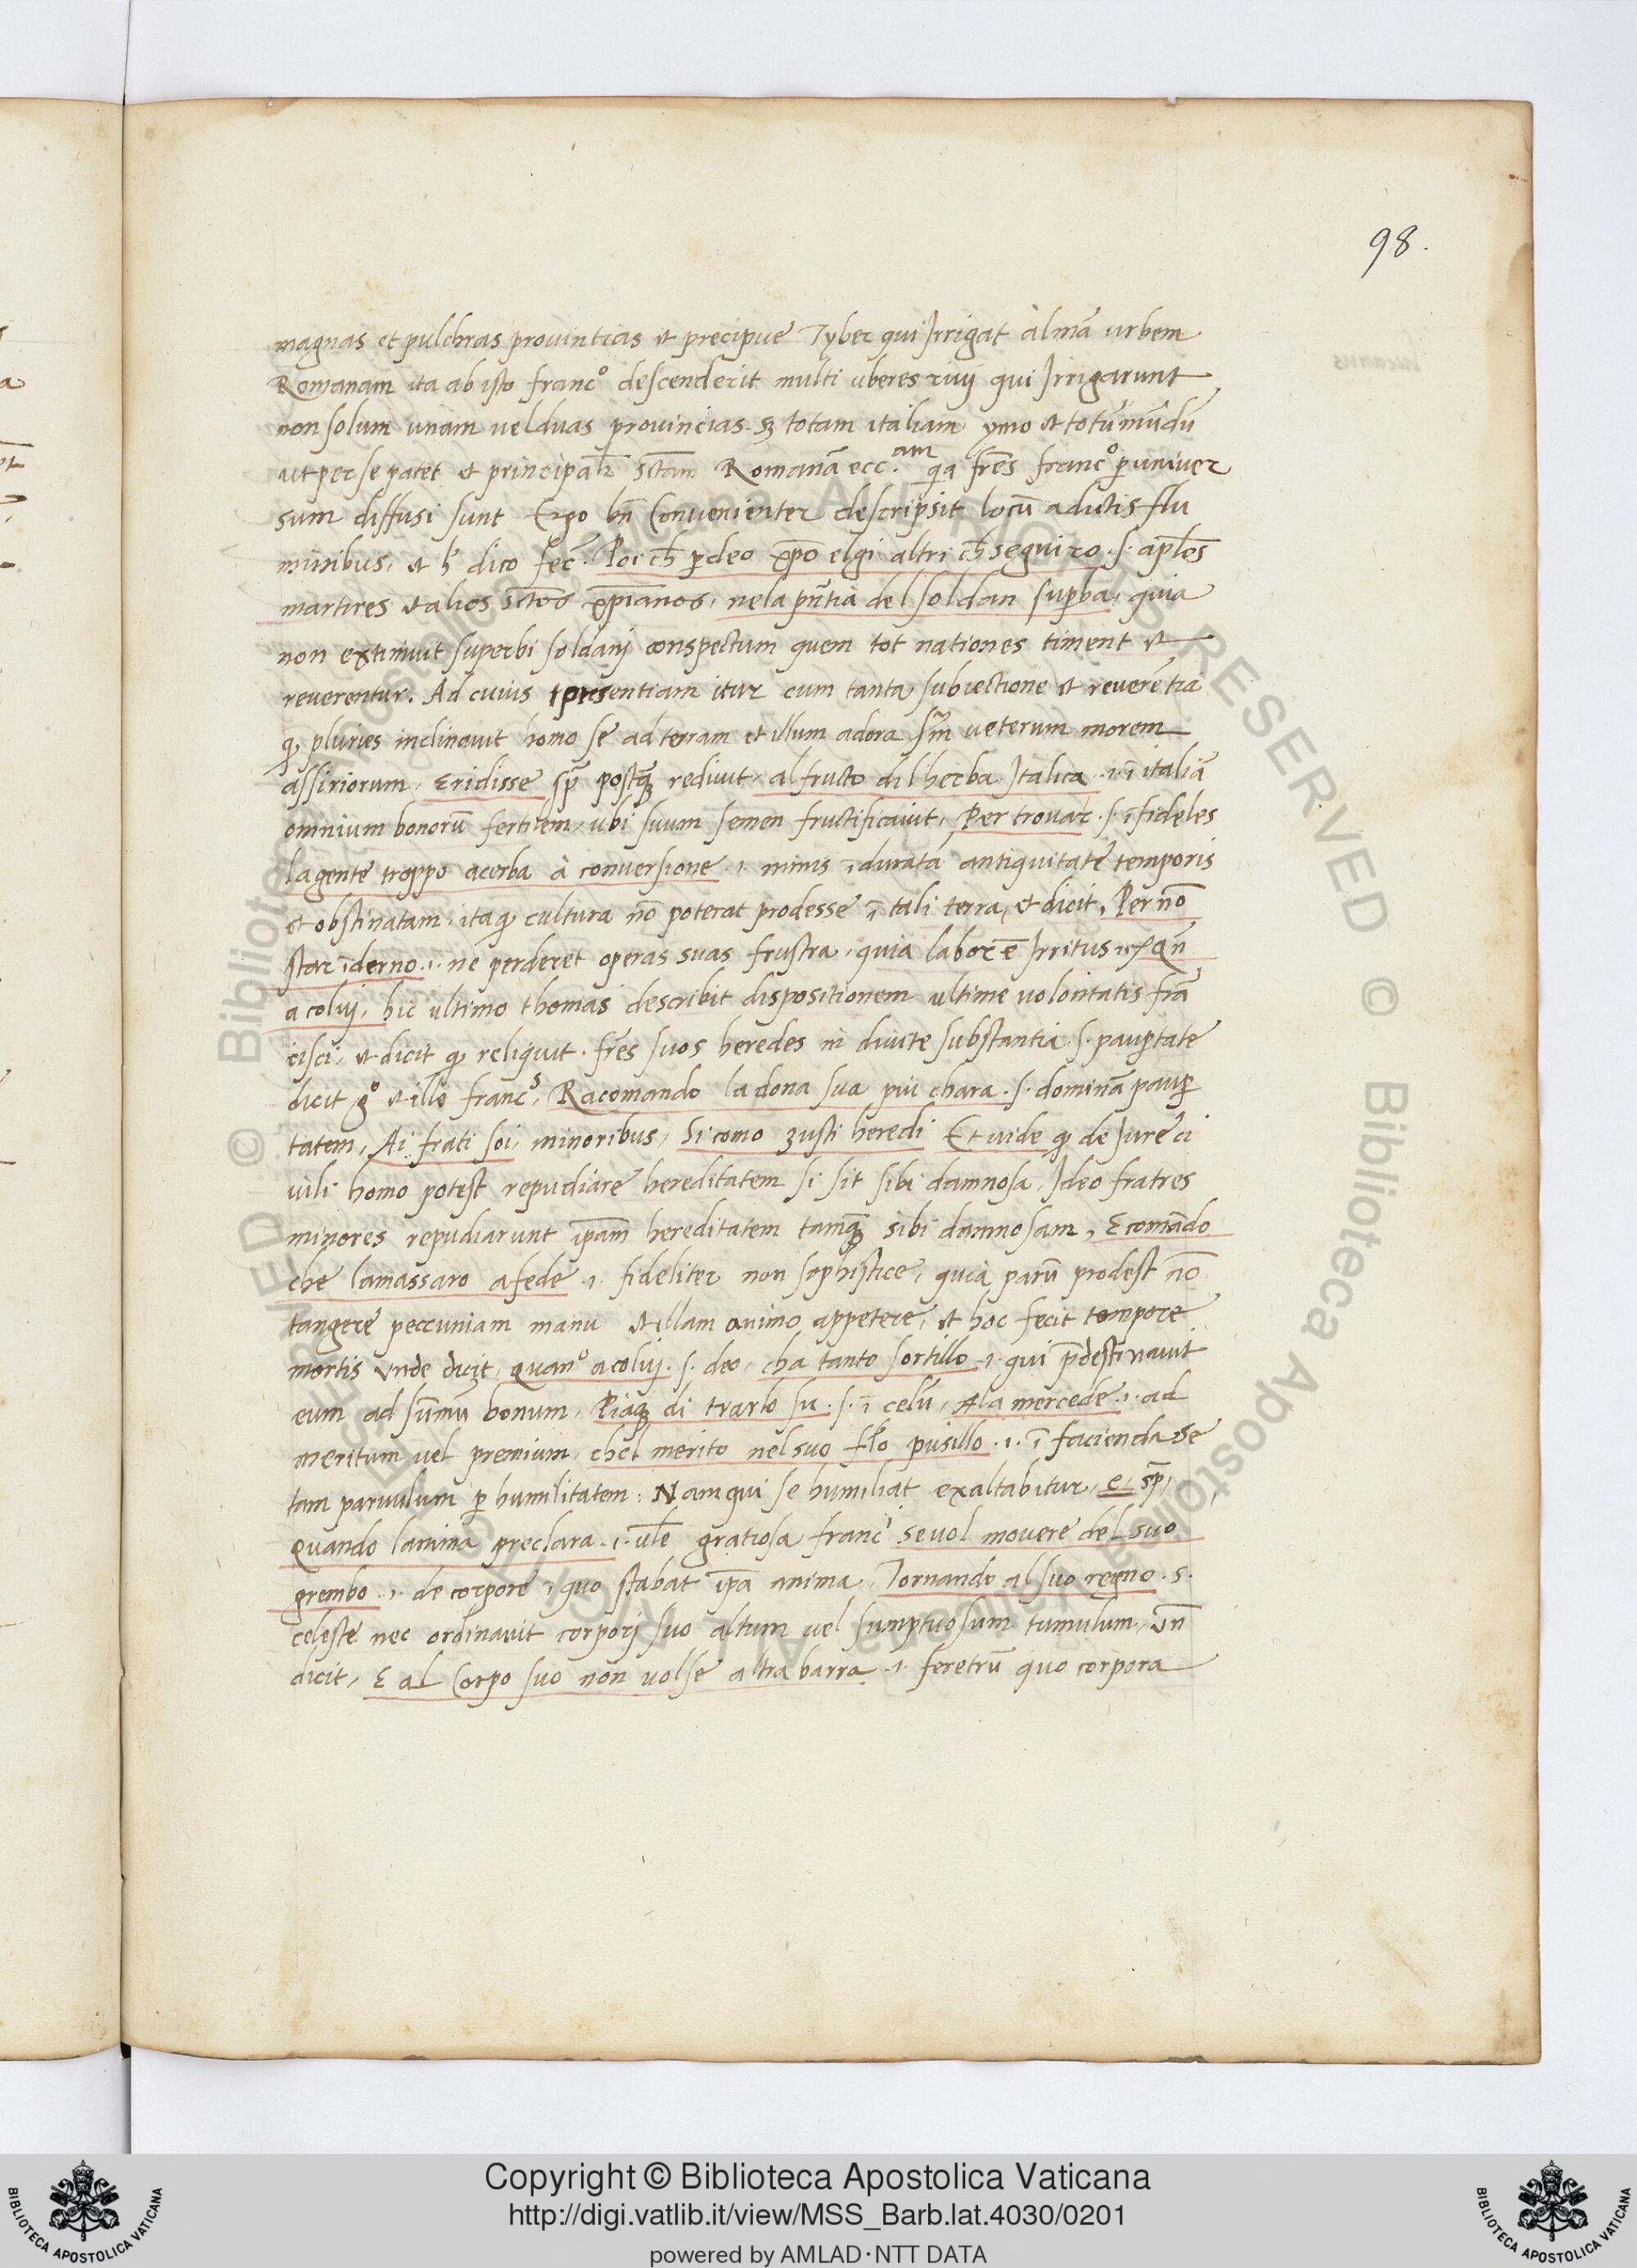 98.
magnas et pulchras prouintias et precipue Tyber qui Irrigat almã urbem
Romanam ita ab isto francº descenderit multi uberes riuij qui Irrigarunt
non solum unam uel duas prouincias sȝ totam italiam ymo et totũ mũdũ
ut per se patet et principał'r sctam Romanã ecc.am qa fres francº p uniuer
sum diffusi sunt Ergo bñ Conuenienter descripsit locũ a dictis flu
minibus, et h' dico fec̃. Poi ch̃ p deo xp̃o elgi altri ch̃ seguiro .s. apłes
martires et alios sctos xp̃ianos, nela pñtia del soldan supba, quia
non extimuit superbi soldanj conspectum quem tot nationes timent et
reuerentur. Ad cuius presentiam itur cum tanta subiectione et reuerẽtia
q pluries inclinauit homo se ad terram et illum adora sm̃ ueterum morem
assiriorum, Eridisse sp̃ postq̃ rediuit, al fructo dil herba Italica .i. ĩ italiã
omnium bonorũ fertilem, ubi suum semen fructificauit, Per trouar .s. ĩfideles
la gente troppo acerba à conuersione .i. nimis ĩduratã antiquitate temporis
et obstinatam, itaq cultura nõ poterat prodesse ĩ tali terra, et dicit, Per nõ
star ĩderno .i. ne perderet operas suas frustra, quia labor ẽ Irritus Qñ
a colui, hic ultimo thomas describit dispositionem ultime uolontatis frã
cisci, et dicit q reliquit fres suos heredes in diuite substantia .s. paupertate
dicit gº et ille francs, Racomando la dona sua piu chara .s. dominã paup
tatem, Ai frati soi, minoribus, Si como zusti heredi Et uide q de Jure ci
uili homo potest repudiare hereditatem si sit sibi damnosa, Ideo fratres
minores repudiarunt ip̃am hereditatem tamq̃ sibi damnosam, E comãdo
che lamassaro a fede .i. fideliter non sophistice, quia parũ prodest nõ
tangere peccuniam manu et illam animo appetere, et hoc fecit tempore
mortis unde dicit, quanº a colui .s. deo, cha tanto sortillo .i. qui p̃destinauit
eum ad sũmũ bonum, Piaq di trarlo su .s. ĩ celũ, Ala mercede .i. ad
meritum uel premium, chel merito nel suo pusillo .i. ĩ facienda se
tam paruulum p humilitatem: Nam qui se humiliat exaltabitur, e sp̃,
Quando lanima preclara .i. ułe gratiosa franc' se uol mouere del suo
grembo .i. de corpore ĩ quo stabat ip̃a anima, Tornando al suo regno .s.
celeste nec ordinauit corporj suo altum uel sumptuosum tumulum, uñ
dicit, E al Corpo suo non uolse altra barra .i. feretrũ quo corpora
Copyright © Biblioteca Apostolica Vaticana
http://digi.vatlib.it/view/MSS_Barb.lat.4030/0201
powered by AMLAD·NTT DATA
BIBLIOTECA APOSTOLICA VATICANA
BIBLIOTECA APOSTOLICA VATICANA